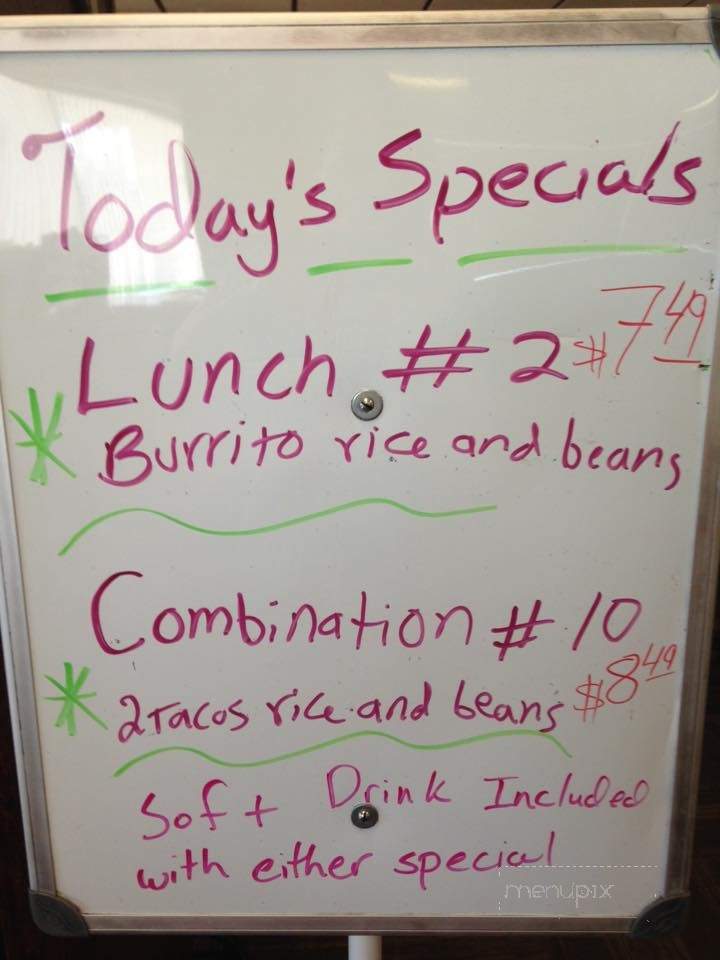 Today's Specials
Lunch # 2 $7.49
Burrito rice and beans
Combination # 10
2 Tacos rice and beans $8.49
Soft Drink Included
with either special
menupix